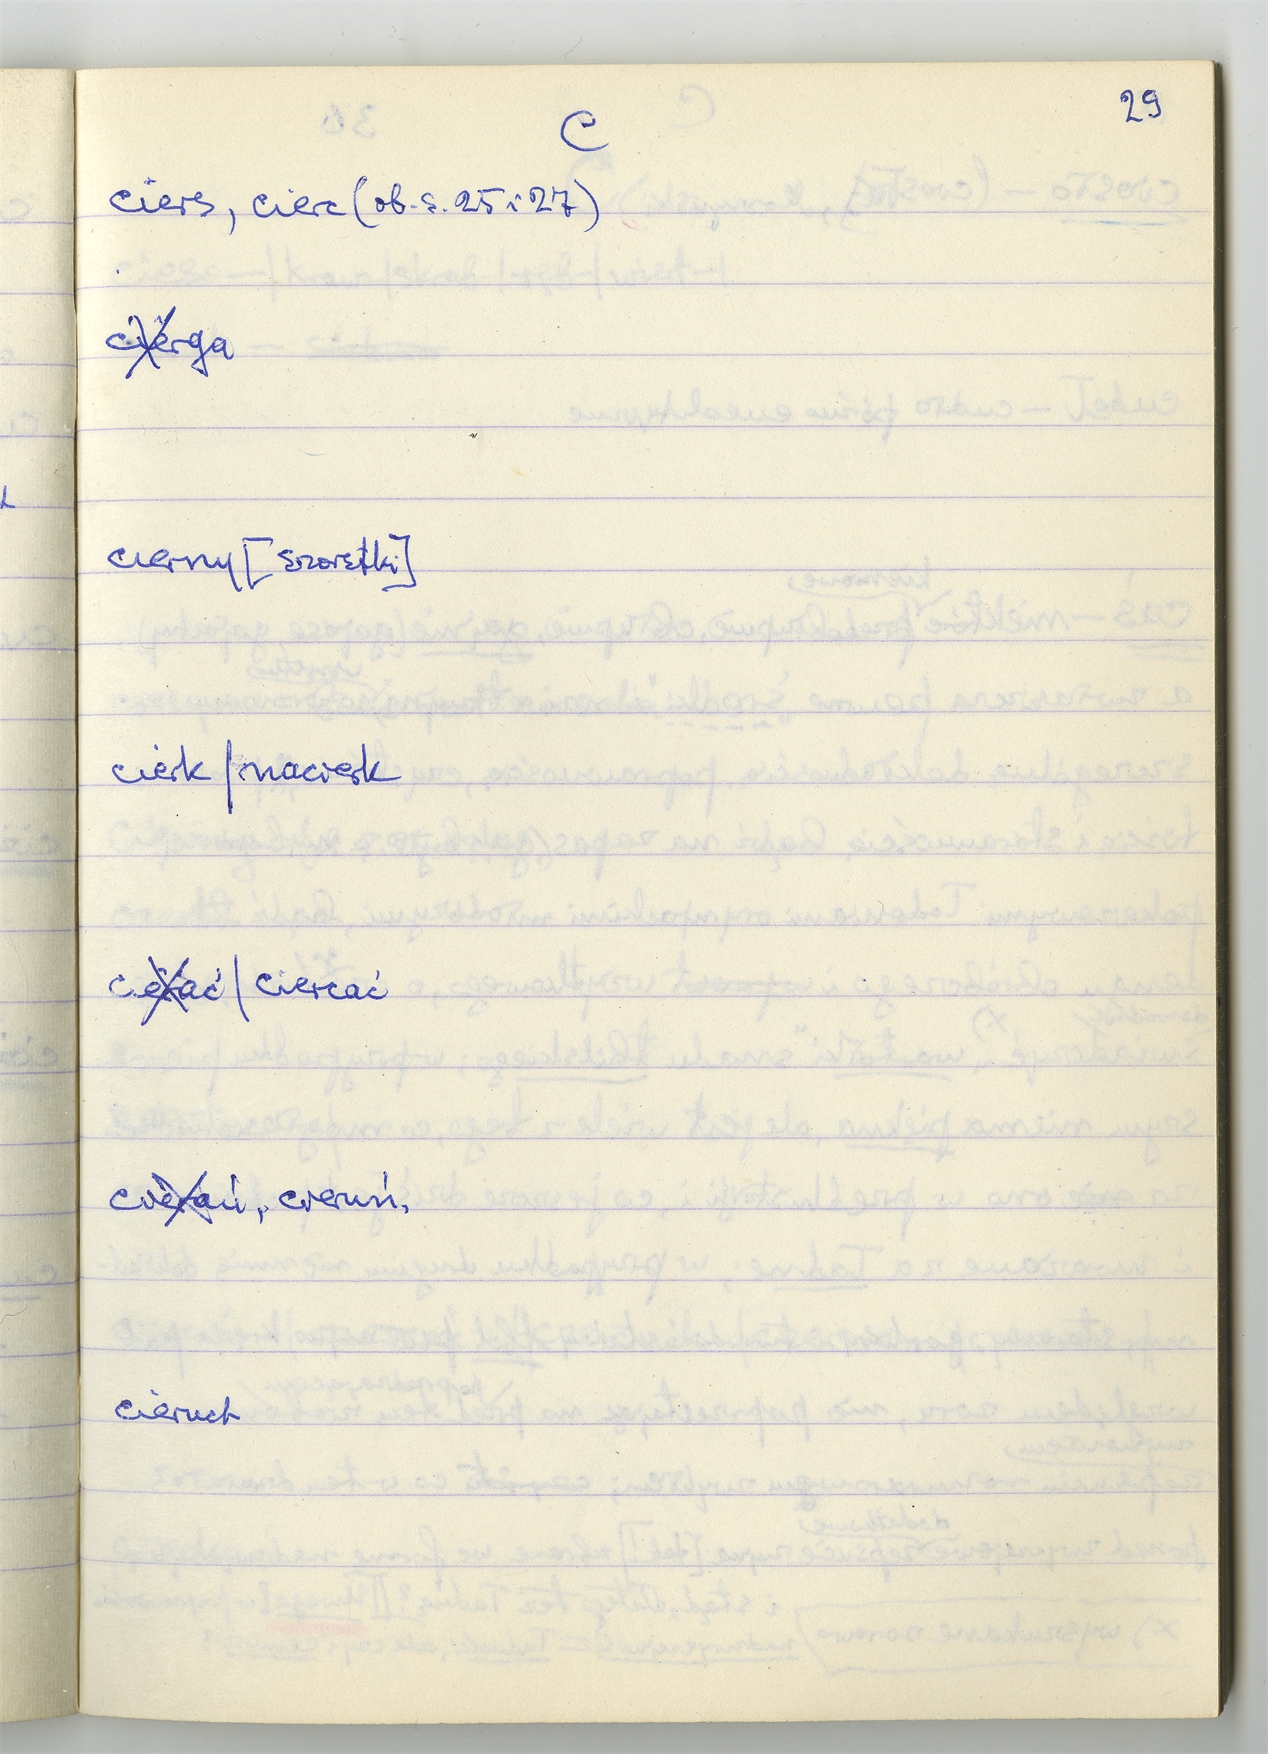 29
C
ciers, cierc (ob. s. 25 i 27)
cierga
cierny [szorstki]
cierk / nacierk
cierać / ciercać
cieruń,
cieruch